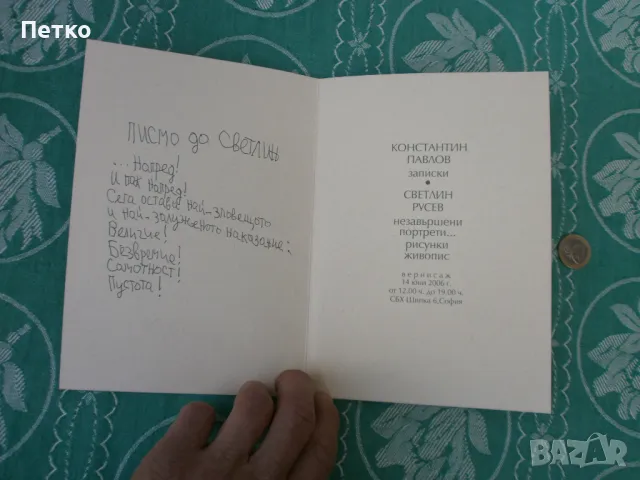 Петко
ПИСМО ДО СВЕТЛИН
...Напред!
И пак напред!
Сега остава най-зловещото
и най-заслуженото наказание:
Величие!
Безвремие!
Самотност!
Пустота!
КОНСТАНТИН
ПАВЛОВ
записки
•
СВЕТЛИН
РУСЕВ
незавършени
портрети...
рисунки
живопис
вернисаж
14 юни 2006 г.
от 12.00 ч. до 19.00 ч.
СБХ Шипка 6, София
BAZAR